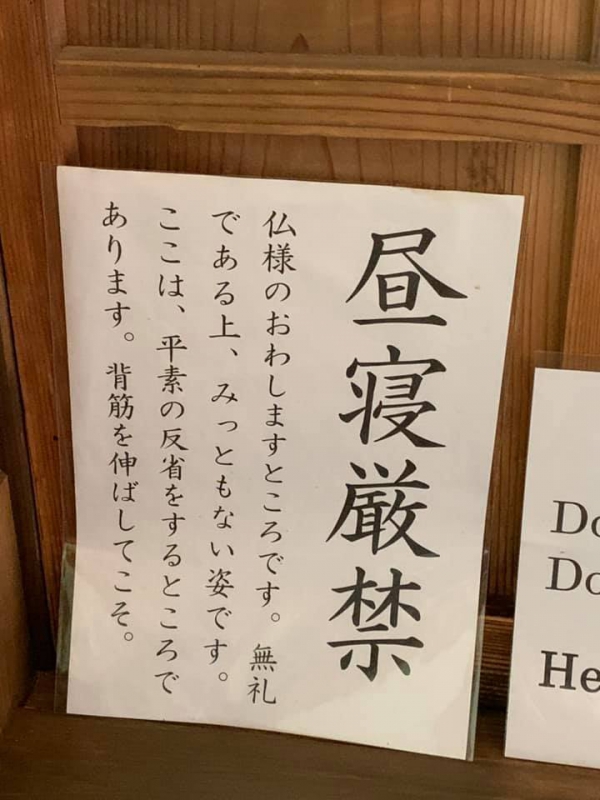 昼寝厳禁
仏様のおわしますところです。無礼
である上、みっともない姿です。
ここは、平素の反省をするところで
あります。背筋を伸ばしてこそ。
Do
Do
He